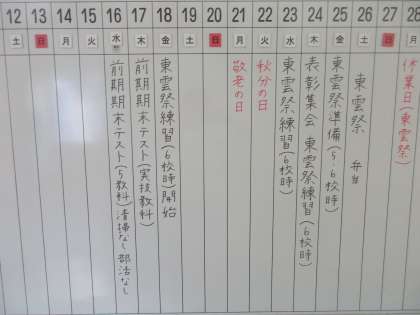 12 13 14 15 16 17 18 19 20 21 22 23 24 25 26 27 28
土 日 月 火 水 木 金 土 日 月 火 水 木 金 土 日 月
前期期末テスト(5教科)清掃なし 部活なし
前期期末テスト(実技教科)
東雲祭練習(6校時)開始
敬老の日
秋分の日
東雲祭練習(6校時)
表彰集会 東雲祭練習(6校時)
東雲祭準備(5・6校時)
東雲祭 弁当
休業日(東雲祭)